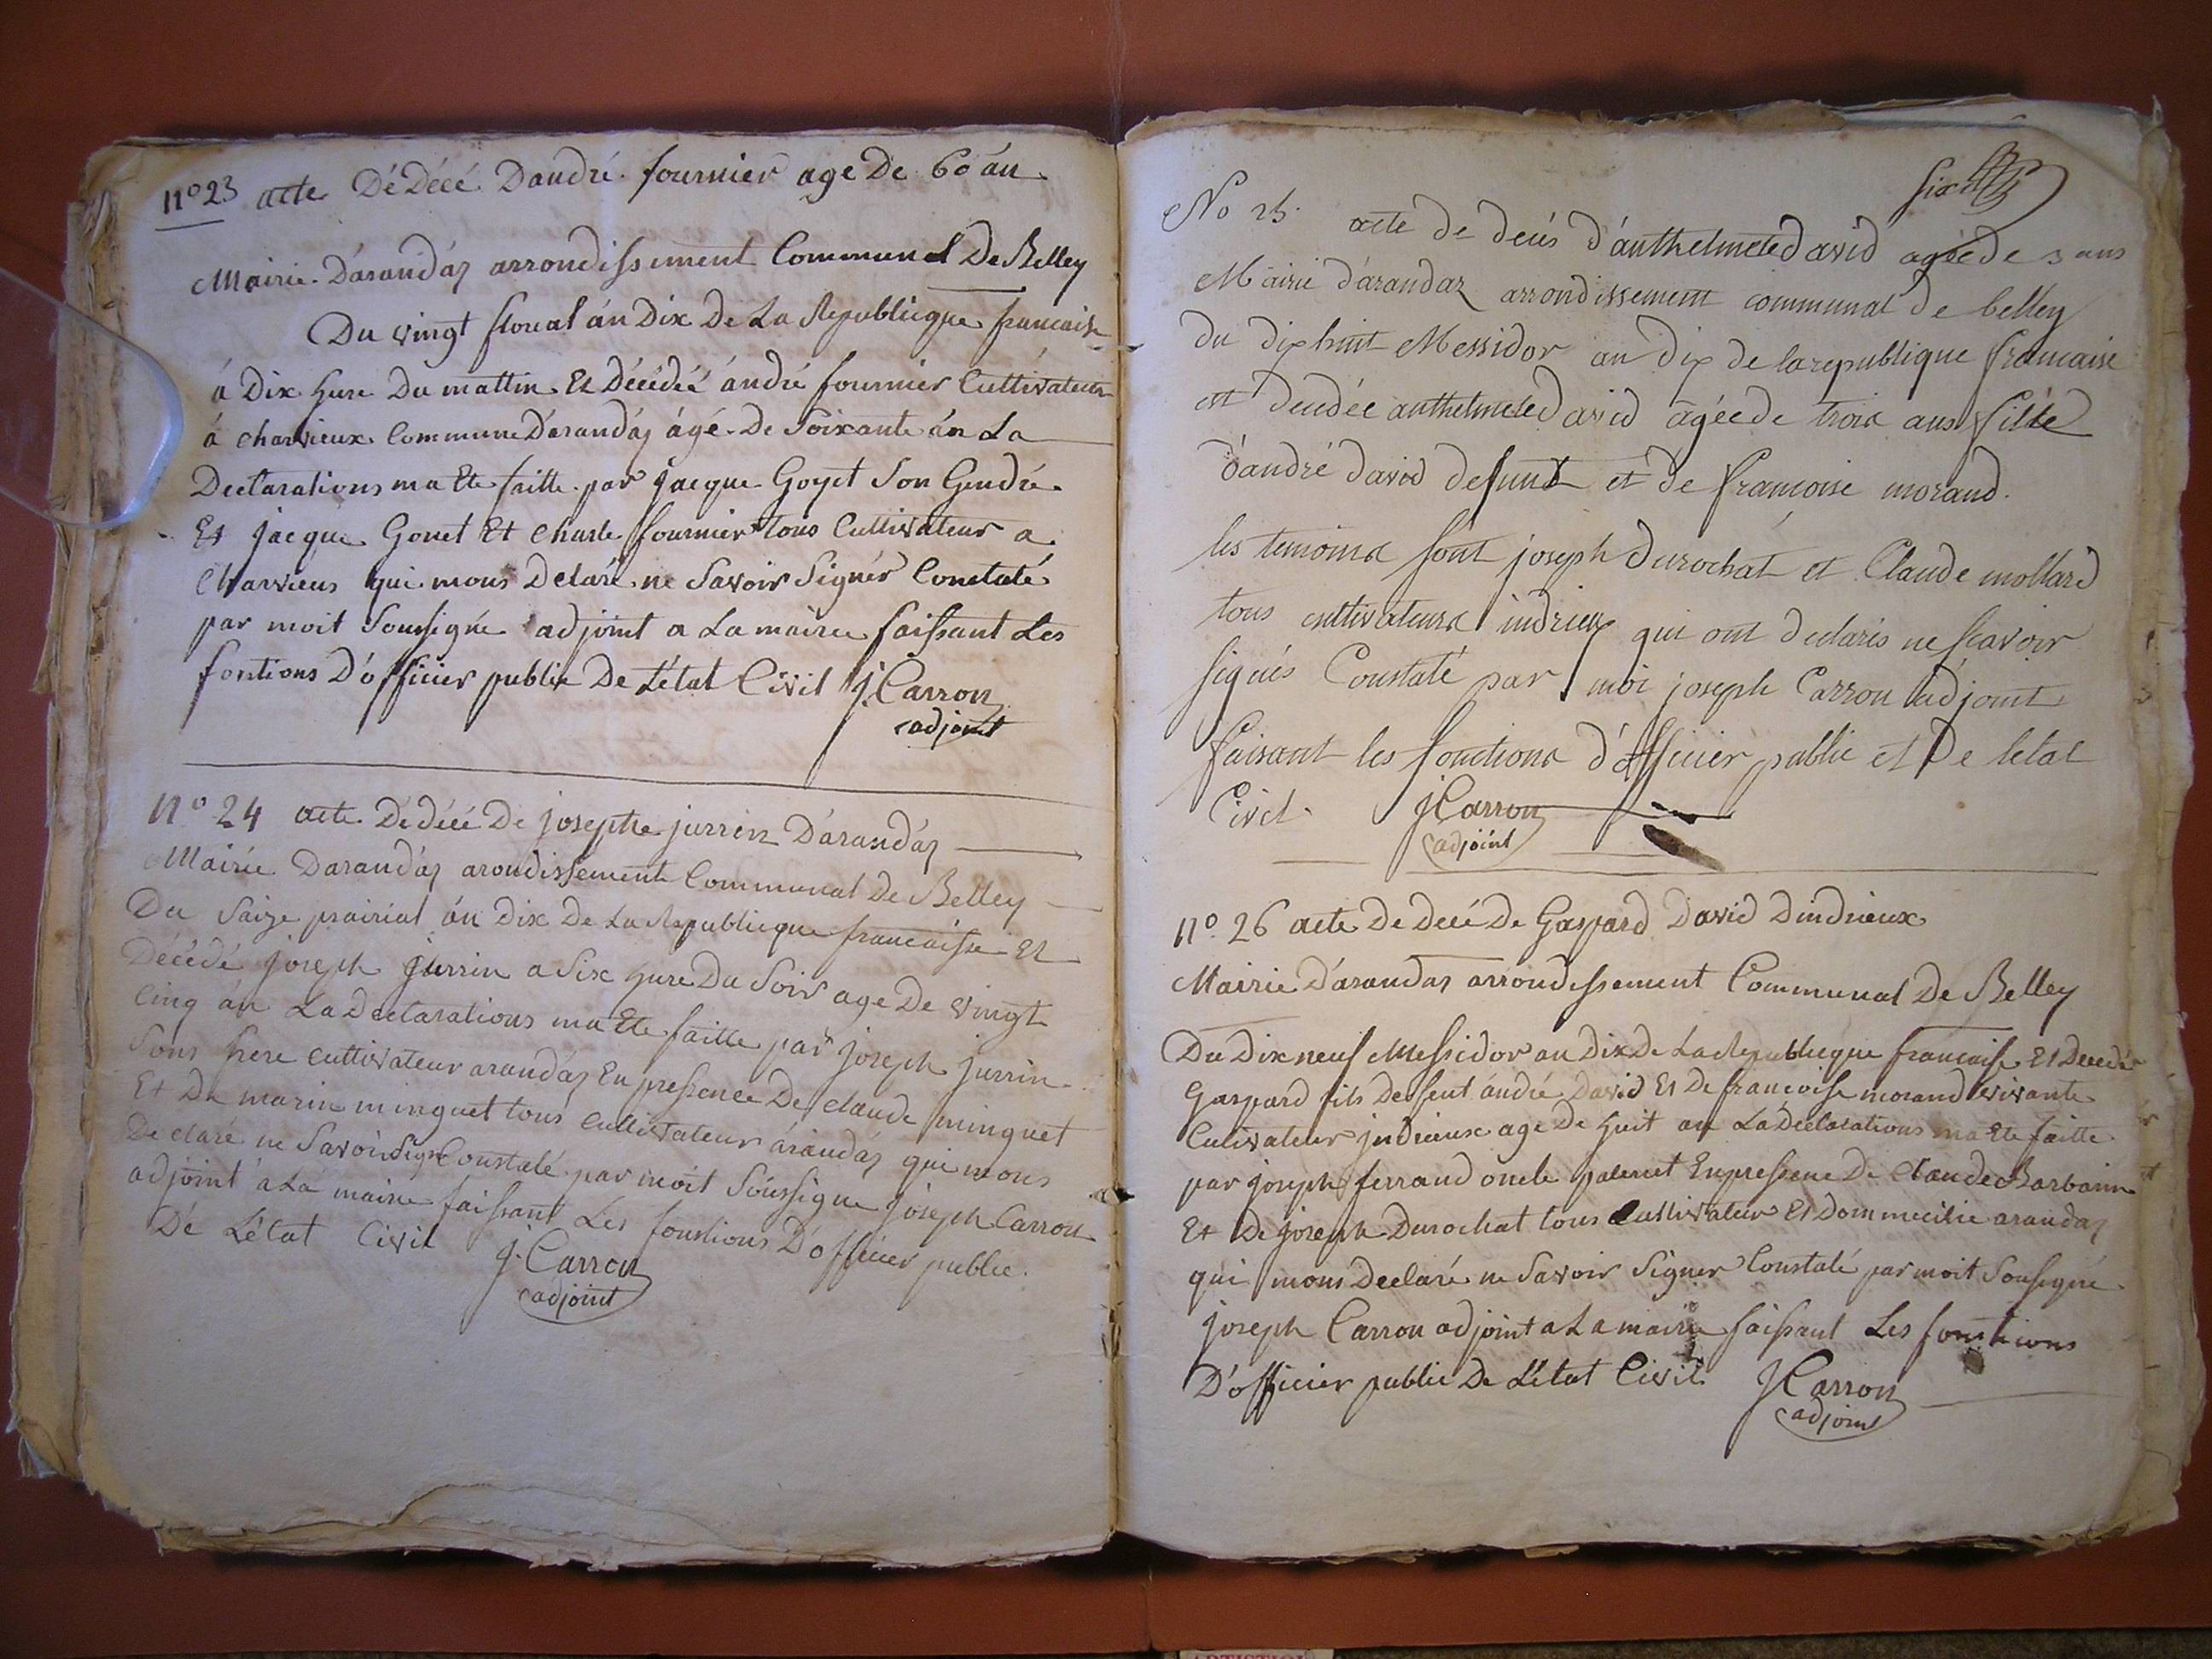 n° 23 acte Dé Décé Dandré fournier age De 60 án
Mairie D'arandáz arrondissement Communal De Belley
Du vingt floreal án Dix De La Republicque francaise
á Dix hure Du mattin Et Décédéé ándré fournier Cultivateur
á charvieux Commune D'arandáz ágé De Soixante án La
Declarations ma Ete faitte par jacque Goyet Son Gendre
Et jacque Gonet Et charle fournier tous Cultivateur a
Charvieux qui mons Delaré ne Savoir Signér Constaté
par moit Soussigné adjoint a La mairie faissant Les
fontions D'officier public De L'état Civil j. Carron
adjoint
n° 24 acte Dé décé De josephe jurrin D'arandáz
Mairie Darandáz arondissement Communal De Belley
Du Saize prairial án Dix De La Republicque francaisse Et
Décédé joseph jurrin a Six hure Du Soir age De vingt
Cinq án La Declarations ma Ete faitte par joseph jurrin
Sons frere Cultivateur arandáz En pressence De Claude minguet
Et De marin minguet tous Cultivateur árandáz qui mons
De claré ne Savoir Signé Constaté par moit Soussigne joseph Carron
adjoint á La mairie faissant Les fonstions D'officier public
Dé L'état Civil j. Carron
adjoint
six
No 25. acte de décés d'anthelmete david agée de 3 ans
Mairie d'arandaz arrondissement communal de belley
du dix huit Messidor an dix de la republique francaise
est decedée anthelmete david agée de trois ans fille
d'andré david defunt et de francoise morand.
les temoins sont joseph durochat et Claude mollard
tous cultivateurs indrieux qui ont declarés ne scavoir
signés Constaté par moi joseph Carron adjoint
faisant les fonctions d'officier public et De letat
Civil. j Carron
adjoint
n° 26 acte De décé De Gaspard David Dindrieux
Mairie D'arandas arrondissement Communal De Belley
Du Dix neuf Messidor an Dix De La Republicque francaise Et Decedé
Gaspard fils De feut ándré David Et De francoisse morand vivante
Cultivateur jndrieux age De huit an La Déclarations ma Ete faitte
par joseph ferrand oncle paternet En pressene De Claude Barbarin
Et De joseph Durochat tous Cultivateur Et Dommicilié arandaz
qui mons Declaré ne Savoir Signer Constaté par moit Soussigné
joseph Carron adjoint a La mairie faissant Les fonstions
D'officier public De L'état Civil j Carron
adjoint